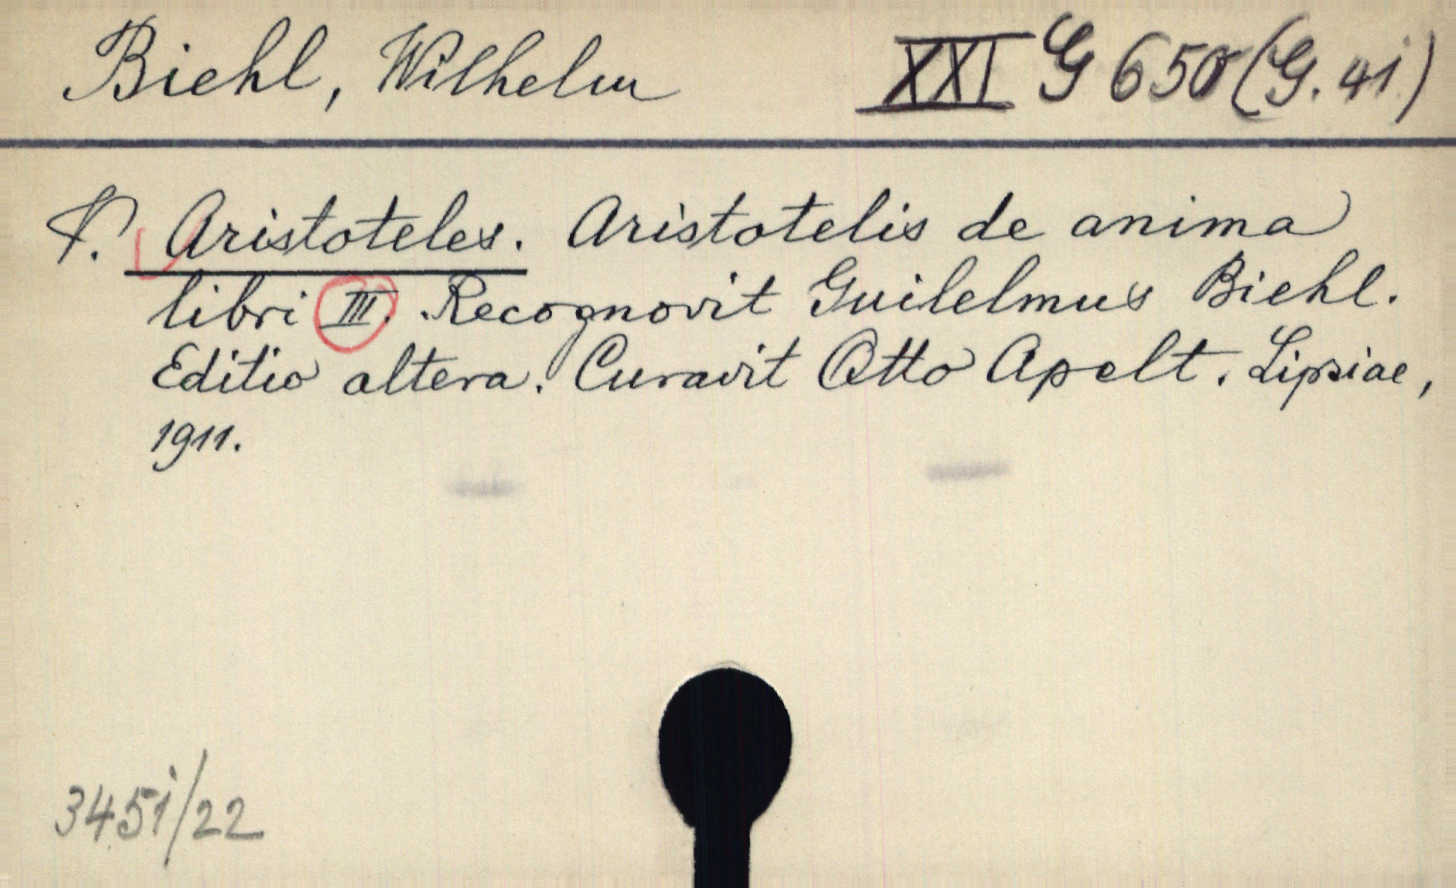 Biehl, Wilhelm XXI G 650 (G. 41)
Aristoteles. Aristotelis de anima
libri III. Recognovit Guilelmus Biehl.
Editio altera. Curavit Otto Apelt. Lipsiae,
1911.
3451/22